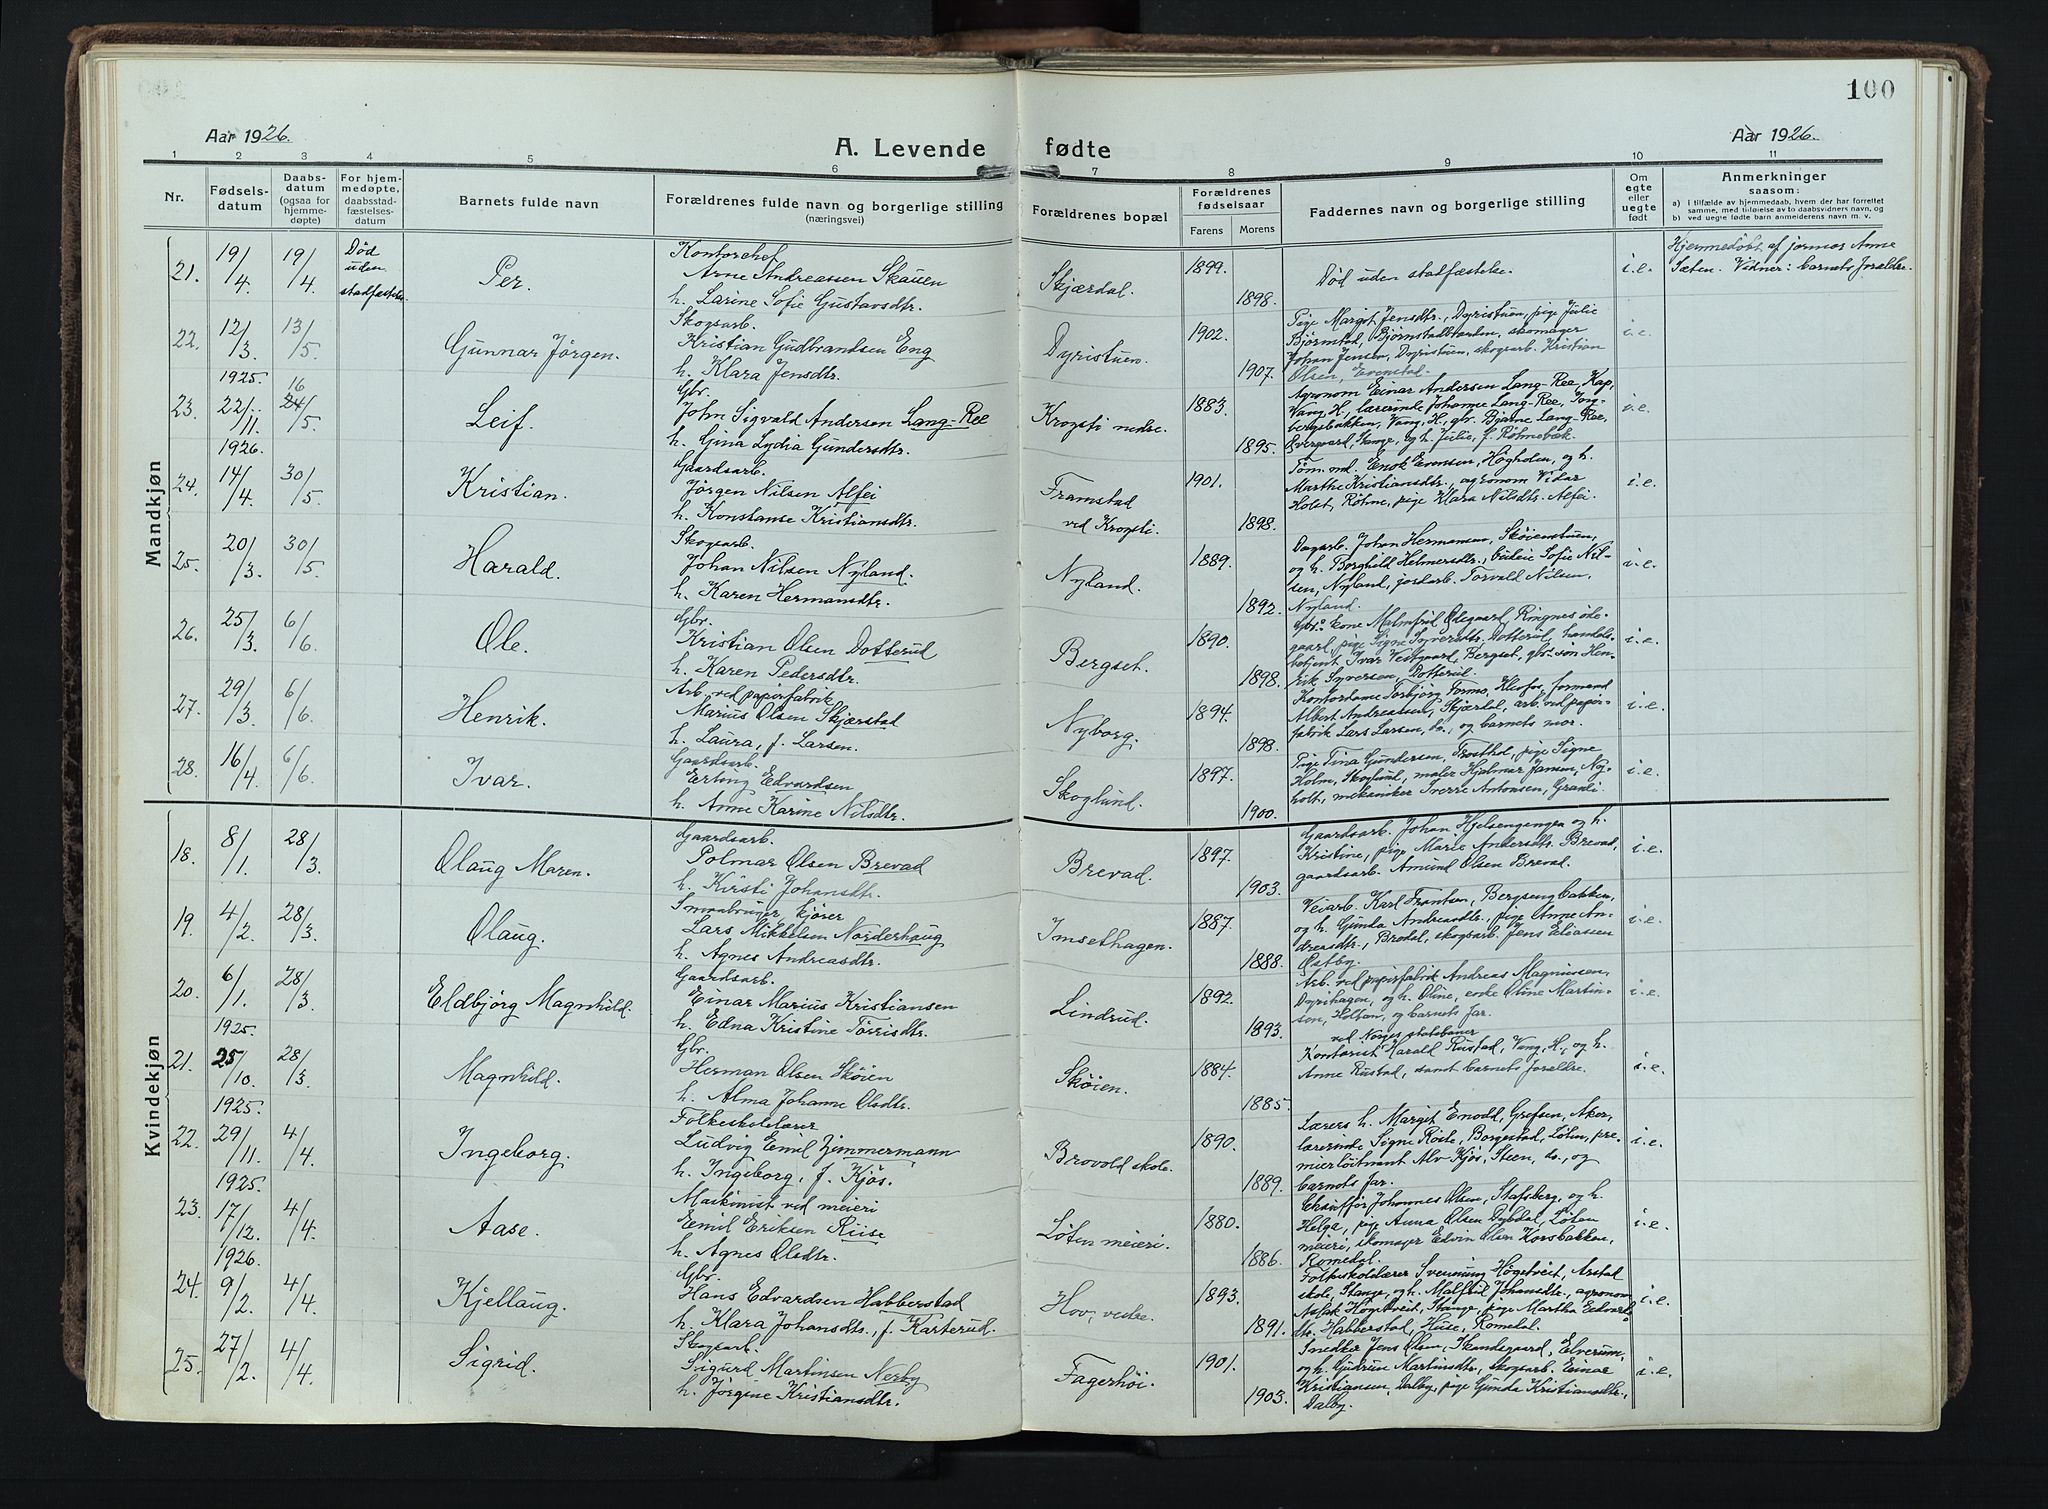 100
Aar 1926.
A. Levende fødte
Aar 1926.
1 2 3 4 5 6 7 8 9 10 11
Nr.
Fødselsdatum
Daabsdatum (ogsaa for hjemmedøpte)
For hjemmedøpte, daabsstadfæstelsesdatum
Barnets fulde navn
Forældrenes fulde navn og borgerlige stilling (næringsvei)
Forældrenes bopæl
Forældrenes fødselsaar
Farens Morens
Faddernes navn og borgerlige stilling
Om egte eller uegte født
Anmerkninger
saasom:
a) i tilfælde av hjemmedaab, hvem der har forrettet samme, med tilføielse av to daabsvidners navn, og
b) ved uegte fødte barn anmelderens navn m. v.
Mandkjøn
21. 19/4 19/4 Død uden stadfæstelse. Per.
Kontorchef
Arne Andreassen Skauen
h. Larine Sofie Gustavsdtr.
Skjærdal. 1899. 1898.
Død uden stadfæstelse.
i.e.
Hjemmedøbt af jormor Anne
Sæten. Vidner: barnets foreldre.
22. 12/3. 13/5. Gunnar Jørgen.
Skogsarb.
Kristian Gudbrandsen Eng
h. Klara Jensdtr.
Dyristuen. 1902. 1907.
Pige Margit Jensdtr., Dyristuen, pige Julie
Bjørnstad, Bjørnstadbraaten, skomager
Johan Jensen, Dyristuen, skogsarb. Kristian
Olsen, Evenstad.
i.e.
1925.
23. 22/11. 16 24/5. Leif.
Gbr.
John Sigvald Andersen Lang-Ree
h. Gina Lydia Gundersdtr.
Krogsti nedre. 1883. 1895.
Agronom Einar Andersen Lang-Ree, Kap,
Vang, H., lærerinde Johanne Lang-Ree,
bergsbakken, Vang, H., gbr. Bjarne Lang-Ree,
Evergaard, Stange, og h. Julie, f. Røhnebæk.
i.e.
1926.
24. 14/4 30/5. Kristian.
Gaardsarb.
Jørgen Nilsen Alfei
h. Konstanse Kristiansdtr.
Framstad
ved Krogsti. 1901. 1898.
Tøm.md. Enok Evensen, Høgholen, og h.
Marthe Kristiansdtr., agronom Vidar
Holst, Røhne, pige Klara Nilsdtr. Alfei.
i.e.
25. 20/3. 30/5. Harald.
Skogsarb.
Johan Nilsen Nyland.
h. Karen Hermansdtr.
Nyland. 1889. 1892.
Dagarb. Johan Hermansen, Skøienstuen,
og h. Borghild Helmersdtr., budeie Sofie Nilsen,
Nyland, jordarb. Torvald Nilsen,
Nyland.
i.e.
26. 25/3. 6/6. Ole.
Gbr.
Kristian Olsen Dotterud
h. Karen Pedersdtr.
Bergset. 1890. 1898.
Gbr.s kone Malmfrid Ødegaard, Ringnes ødegaard,
pige Signe Syversdtr. Dotterud, handelsbetjent
Ivar Vestgaard, Bergset, gbr.søn Henrik
Syversen, Dotterud.
i.e.
27. 29/3. 6/6. Henrik.
Arb. ved papirfabrik
Marius Olsen Skjærstad
h. Laura, f. Larsen.
Nyborg. 1894. 1898.
Kontordame Torbjørg Tormo, Klevfos, formand
Albert Andreassen, Skjærdal, arb. ved papirfabrik
Lars Larsen, do., og barnets mor.
i.e.
28. 16/4 6/6. Ivar.
Gaardsarb.
Erling Edvardsen
h. Anne Karine Nilsdtr.
Skoglund. 1897. 1900.
Pige Tina Gundersen, pige Signe
Holm, Skoglund, maler Hjalmar Jansen, Nyholt,
mekaniker Sverre Antonsen, Granli.
i.e.
Kvindekjøn
18. 8/1. 28/3. Olaug Maren.
Gaardsarb.
Polmar Olsen Brevad
h. Kirsti Johansdtr.
Brevad. 1897. 1903.
Gaardsarb. Johan Hjelsengengen og h.
Kristine, pige Marie Andersdtr. Brevad,
gaardsarb. Amund Olsen Brevad.
i.e.
19. 4/2. 28/3. Olaug.
Smaabruger, kjører
Lars Mikkelsen Norderhaug
h. Agnes Andreasdtr.
Imsethagen. 1887. 1888.
Veiarb. Karl Frantsen, Bergsengbakken,
og h. Gunda Andreasdtr., pige Anne Andreasdtr.,
Brødal, skogsarb. Jens Eliassen
Østby.
i.e.
20. 6/1. 28/3. Eldbjørg Magnhild.
Gaardsarb.
Einar Marius Kristiansen
h. Edna Kristine Torrisdtr.
Lindrud. 1892. 1893.
Arb. ved papirfabrik Andreas Magnussen,
Dyrihagen, og h. Oline, enke Oline Martinsen,
Holten, og barnets far.
i.e.
1925.
21. 25/10. 28/3. Magnhild.
Gbr.
Herman Olsen Skøien
h. Alma Johanne Olsdtr.
Skøien. 1884. 1885.
ved Norges statsbaner
Kontorist Harald Rustad, Vang, H., og h.
Anne Rustad, samt barnets forældre.
i.e.
1925.
22. 29/11. 4/4. Ingeborg.
Folkeskolelærer
Ludvig Emil Zimmermann
h. Ingeborg, f. Kjøs.
Brovold skole. 1890. 1889.
Lærers h. Margit Enodd, Grefsen, Aker,
lærerinde Signe Røite, Borgestad, Løten, premierløitnant
Alv Kjøs, Steen, do., og
barnets far.
i.e.
1925.
23. 17/12. 4/4. Aase.
Maskinist ved meieri
Emil Eriksen Riise
h. Agnes Olsdtr.
Løten meieri. 1880. 1886.
Chauffør Johannes Olsen, Stafsberg, og h.
Helga, pige Anna Olsen Dybdal, Løten
meieri, skomager Edvin Olsen Korsbakken,
Romedal.
i.e.
1926.
24. 9/2. 4/4. Kjellaug.
Gbr.
Hans Edvardsen Habberstad
h. Klara Johansdtr., f. Karterud.
Hov, vestre. 1893. 1891.
Folkeskolelærer Sveinung Høgetveit, Arstad
skole, Stange, og h. Malfrid Johansdtr., agronom
Aslak Høgetveit, Stange, pige Marthe Edvardsdtr.
Habberstad, Huse, Romedal.
i.e.
25. 27/2. 4/4. Sigrid.
Skogsarb.
Sigurd Martinsen Nerby
h. Jørgine Kristiansdtr.
Fagerhøi. 1901. 1903.
Snedker Jens Olsen, Strandsgaard, Elverum,
og h. Gudrun Martinsdtr., skogsarb. Einar
Kristiansen, Dalby, pige Gunda Kristiansdtr.,
Dalby.
i.e.